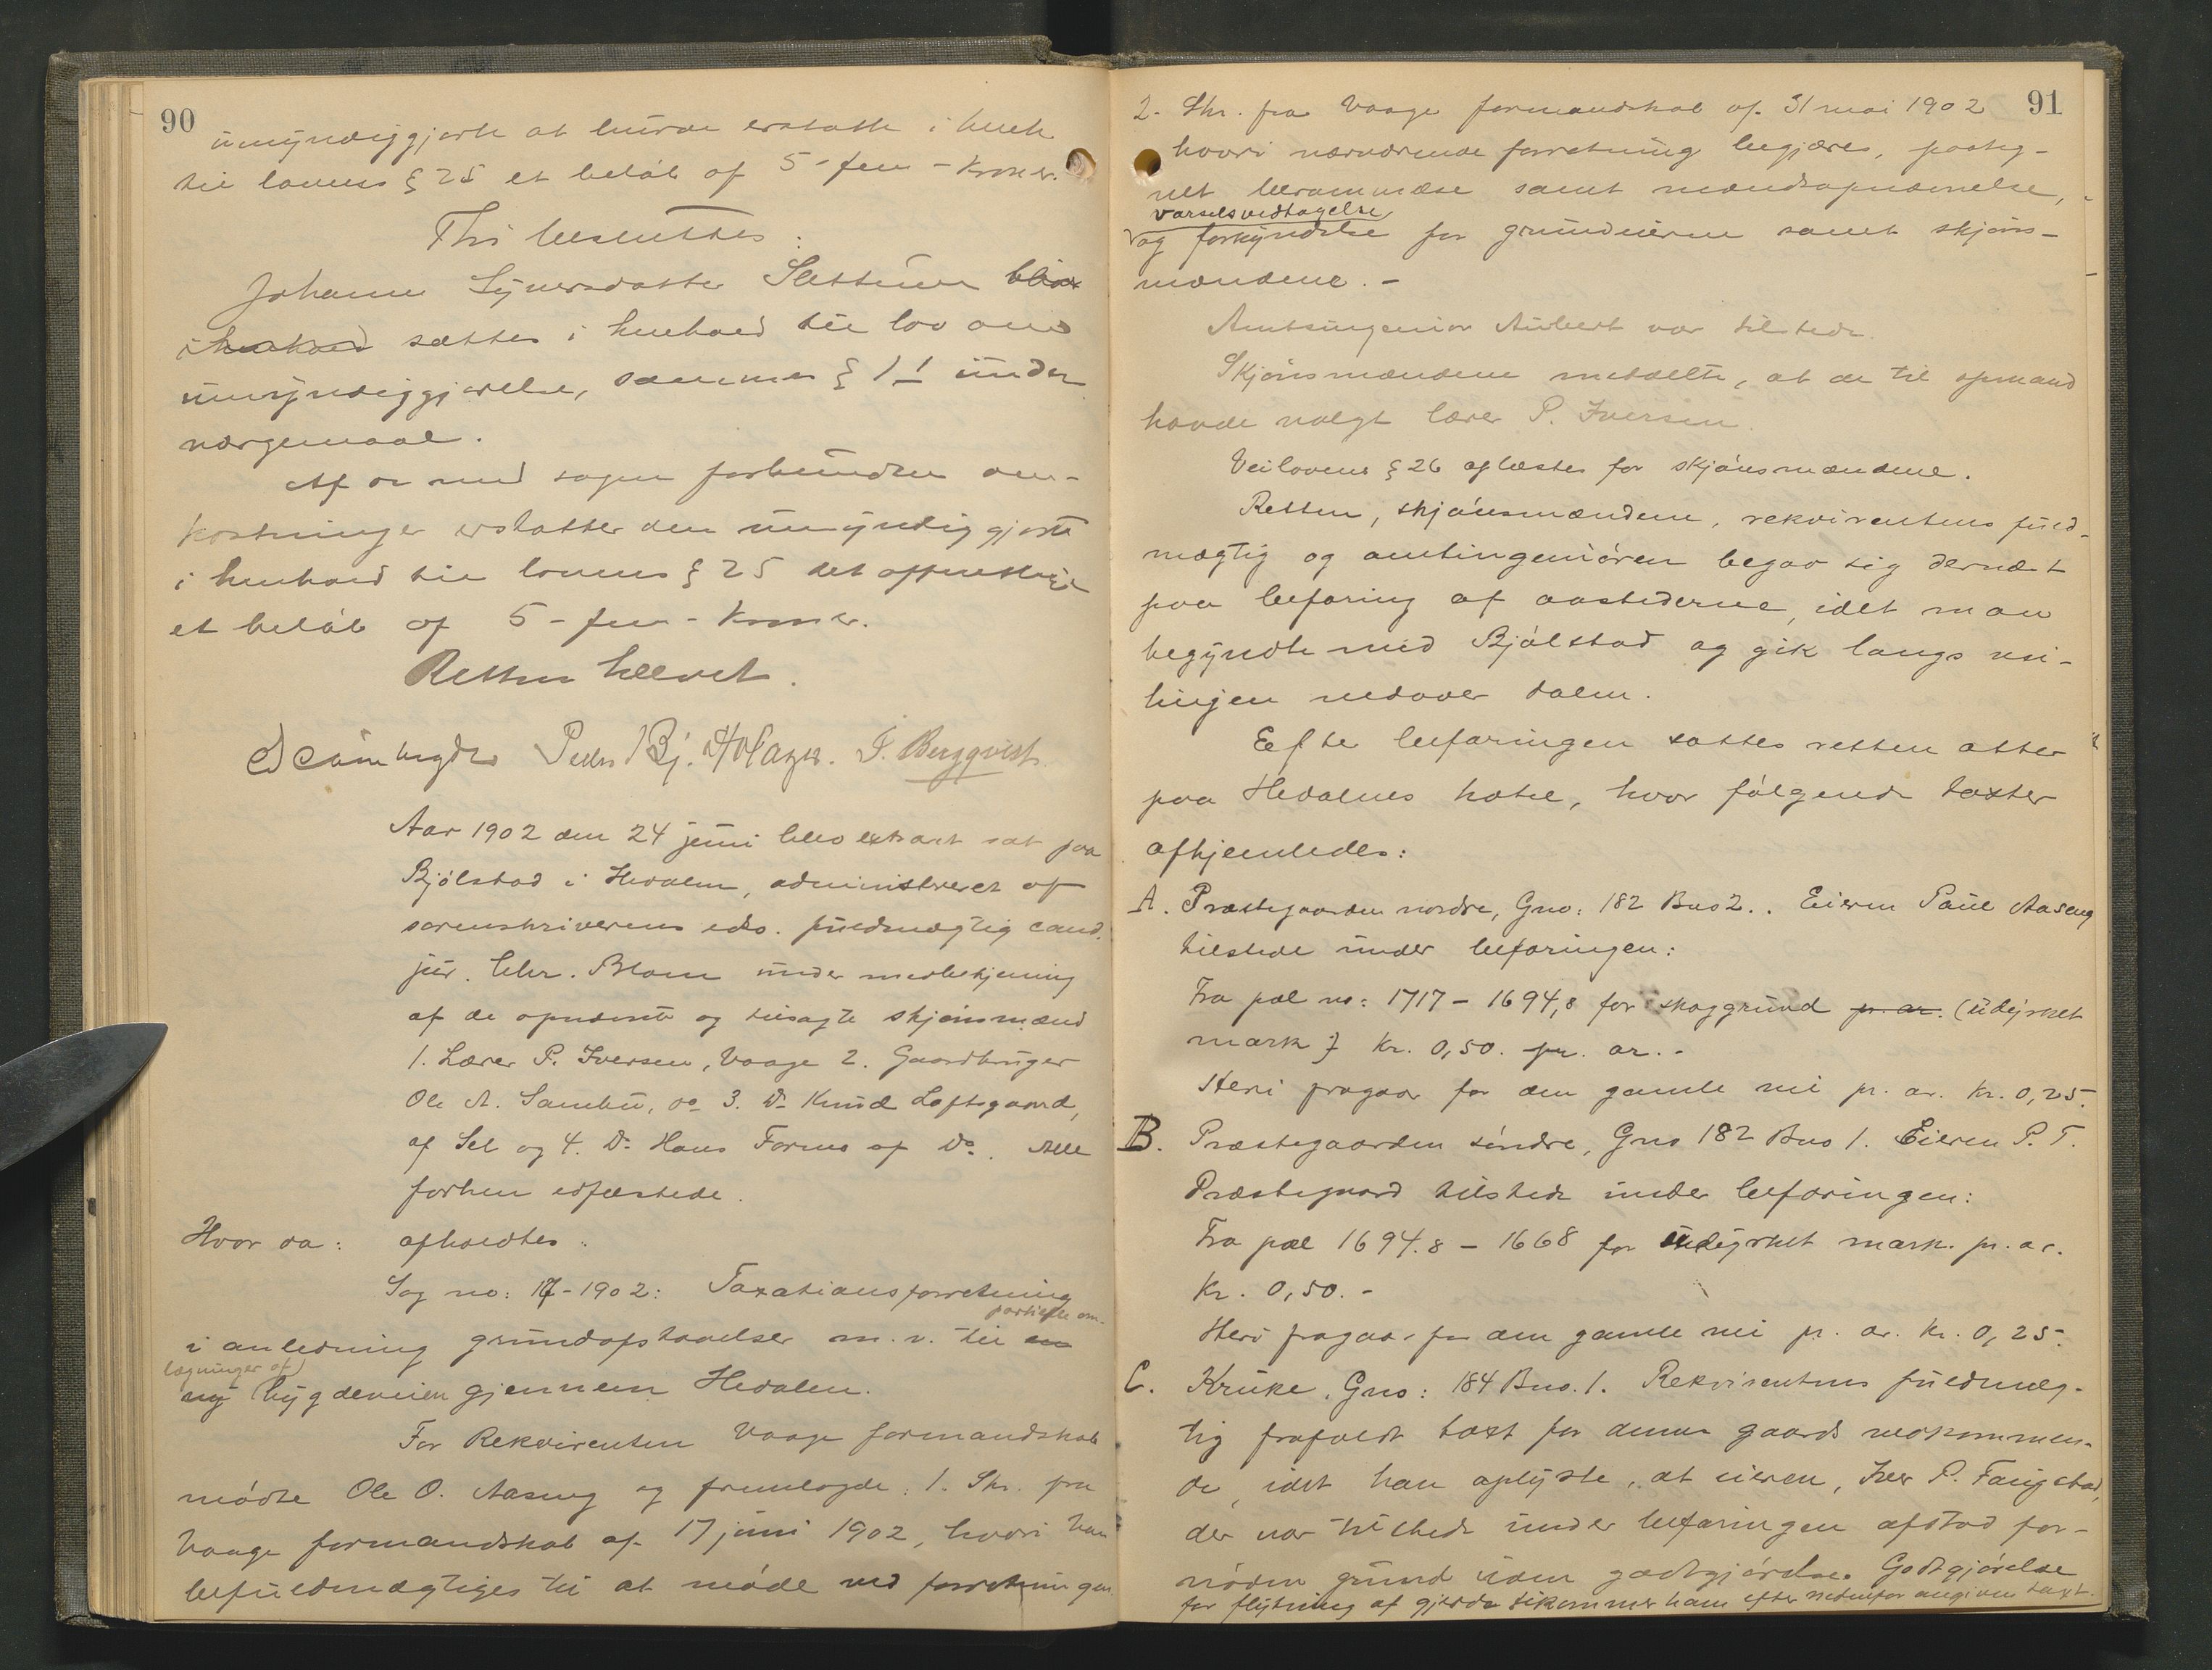 90
umyndiggjorte at burde erstatte i henh.
til lovens § 25 et beløb af 5 - fem - kroner.
Thi besluttes:
Johanne Syversdatter Slettum bliver
i henhold sættes i henhold til lov om
umyndiggjørelse, sammes § 11 under
værgemaal.
Af de med sagen forbundne om-
kostninger erstatter den umyndiggjorte
i henhold til lovens § 25 det offentlige
et beløb af 5 - fem - kroner.
Retten hævet.
Peder Bj. I. Bergqvist.
Aar 1902 den 24 juni blev extraret sat paa
Bjølstad i Hedalen, administreret af
sorenskriverens eds. fuldmægtig cand.
jur. Chr. Blom under medbetjening
af de opnævnte og tilsagte skjønsmænd
1. Lærer P. Iversen, Vaage 2. Gaardbruger
Ole A. Sambu, do 3. Do Knud Loftsgaard,
af Sel og 4. Do Hans Formo af Do. Alle
forhen edfæstede.
Hvor da: afholdtes:
Sag no: 17-1902: Taxationsforretning
i anledning grundafstaaelser m.v. til en partielle om-
lægninger af
ny bygdeveien gjennem Hedalen.
For Rekvirenten Vaage formandskab
mødte Ole O. Aaseng og fremlagde: 1. Skr. fra
Vaage formandskab af 17 juni 1902, hvori han
befuldmægtiges til at møde ved forretningen.
91
2. Skr. fra Vaage formandskab af 31 mai 1902
hvori nærværende forretning begjæres, paateg-
net berammelse samt mændsopnævnelse,
varselsvedtagelse
og forkyndelse for grundeierne samt skjøns-
mændene. -
Amtsingeniør Aubert var tilstede.
Skjønsmændene meddelte, at de til opmand
havde valgt lærer P. Iversen.
Veilovens § 26 oplæstes for skjønsmændene.
Retten, skjønsmændene, rekvirentens fuld-
mægtig og amtingeniøren begav sig dernæst
paa befaring af aastederne, idet man
begyndte med Bjølstad og gik langs vei-
linjen nedover dalen.
Efter befaringen sattes retten atter
paa Hedalens hotel, hvor følgende taxter
afhjemledes:
A. Præstegaarden nordre, Gno: 182 Bno 2.. Eieren Paul Aaseng
tilstede under befaringen:
Fra pæl no: 1717 - 1694,8 for skoggrund pr. ar. (udyrket
mark) Kr. 0,50. pr. ar. -
Heri fragaar for den gamle vei pr. ar. Kr. 0,25.
B. Præstegaarden søndre, Gno 182 Bno 1. Eieren P. T.
Præstegaard tilstede under befaringen:
Fra pæl 1694.8 - 1668 for udyrket mark pr. ar.
Kr. 0,50. -
Heri fragaar for den gamle vei pr. ar. Kr. 0,25.
C. Kruke, Gno: 184 Bno. 1. Rekvirentens fuldmæg-
tig frafaldt taxt for denne gaards vedkommen-
de, idet han oplyste, at eieren, Iver P. Faugstad,
der var tilstede under befaringen afstod for-
nøden grund uden godtgjørelse. Godtgjørelse
for flytning af gjerde tilkommer ham efter nedenfor angivne taxt.